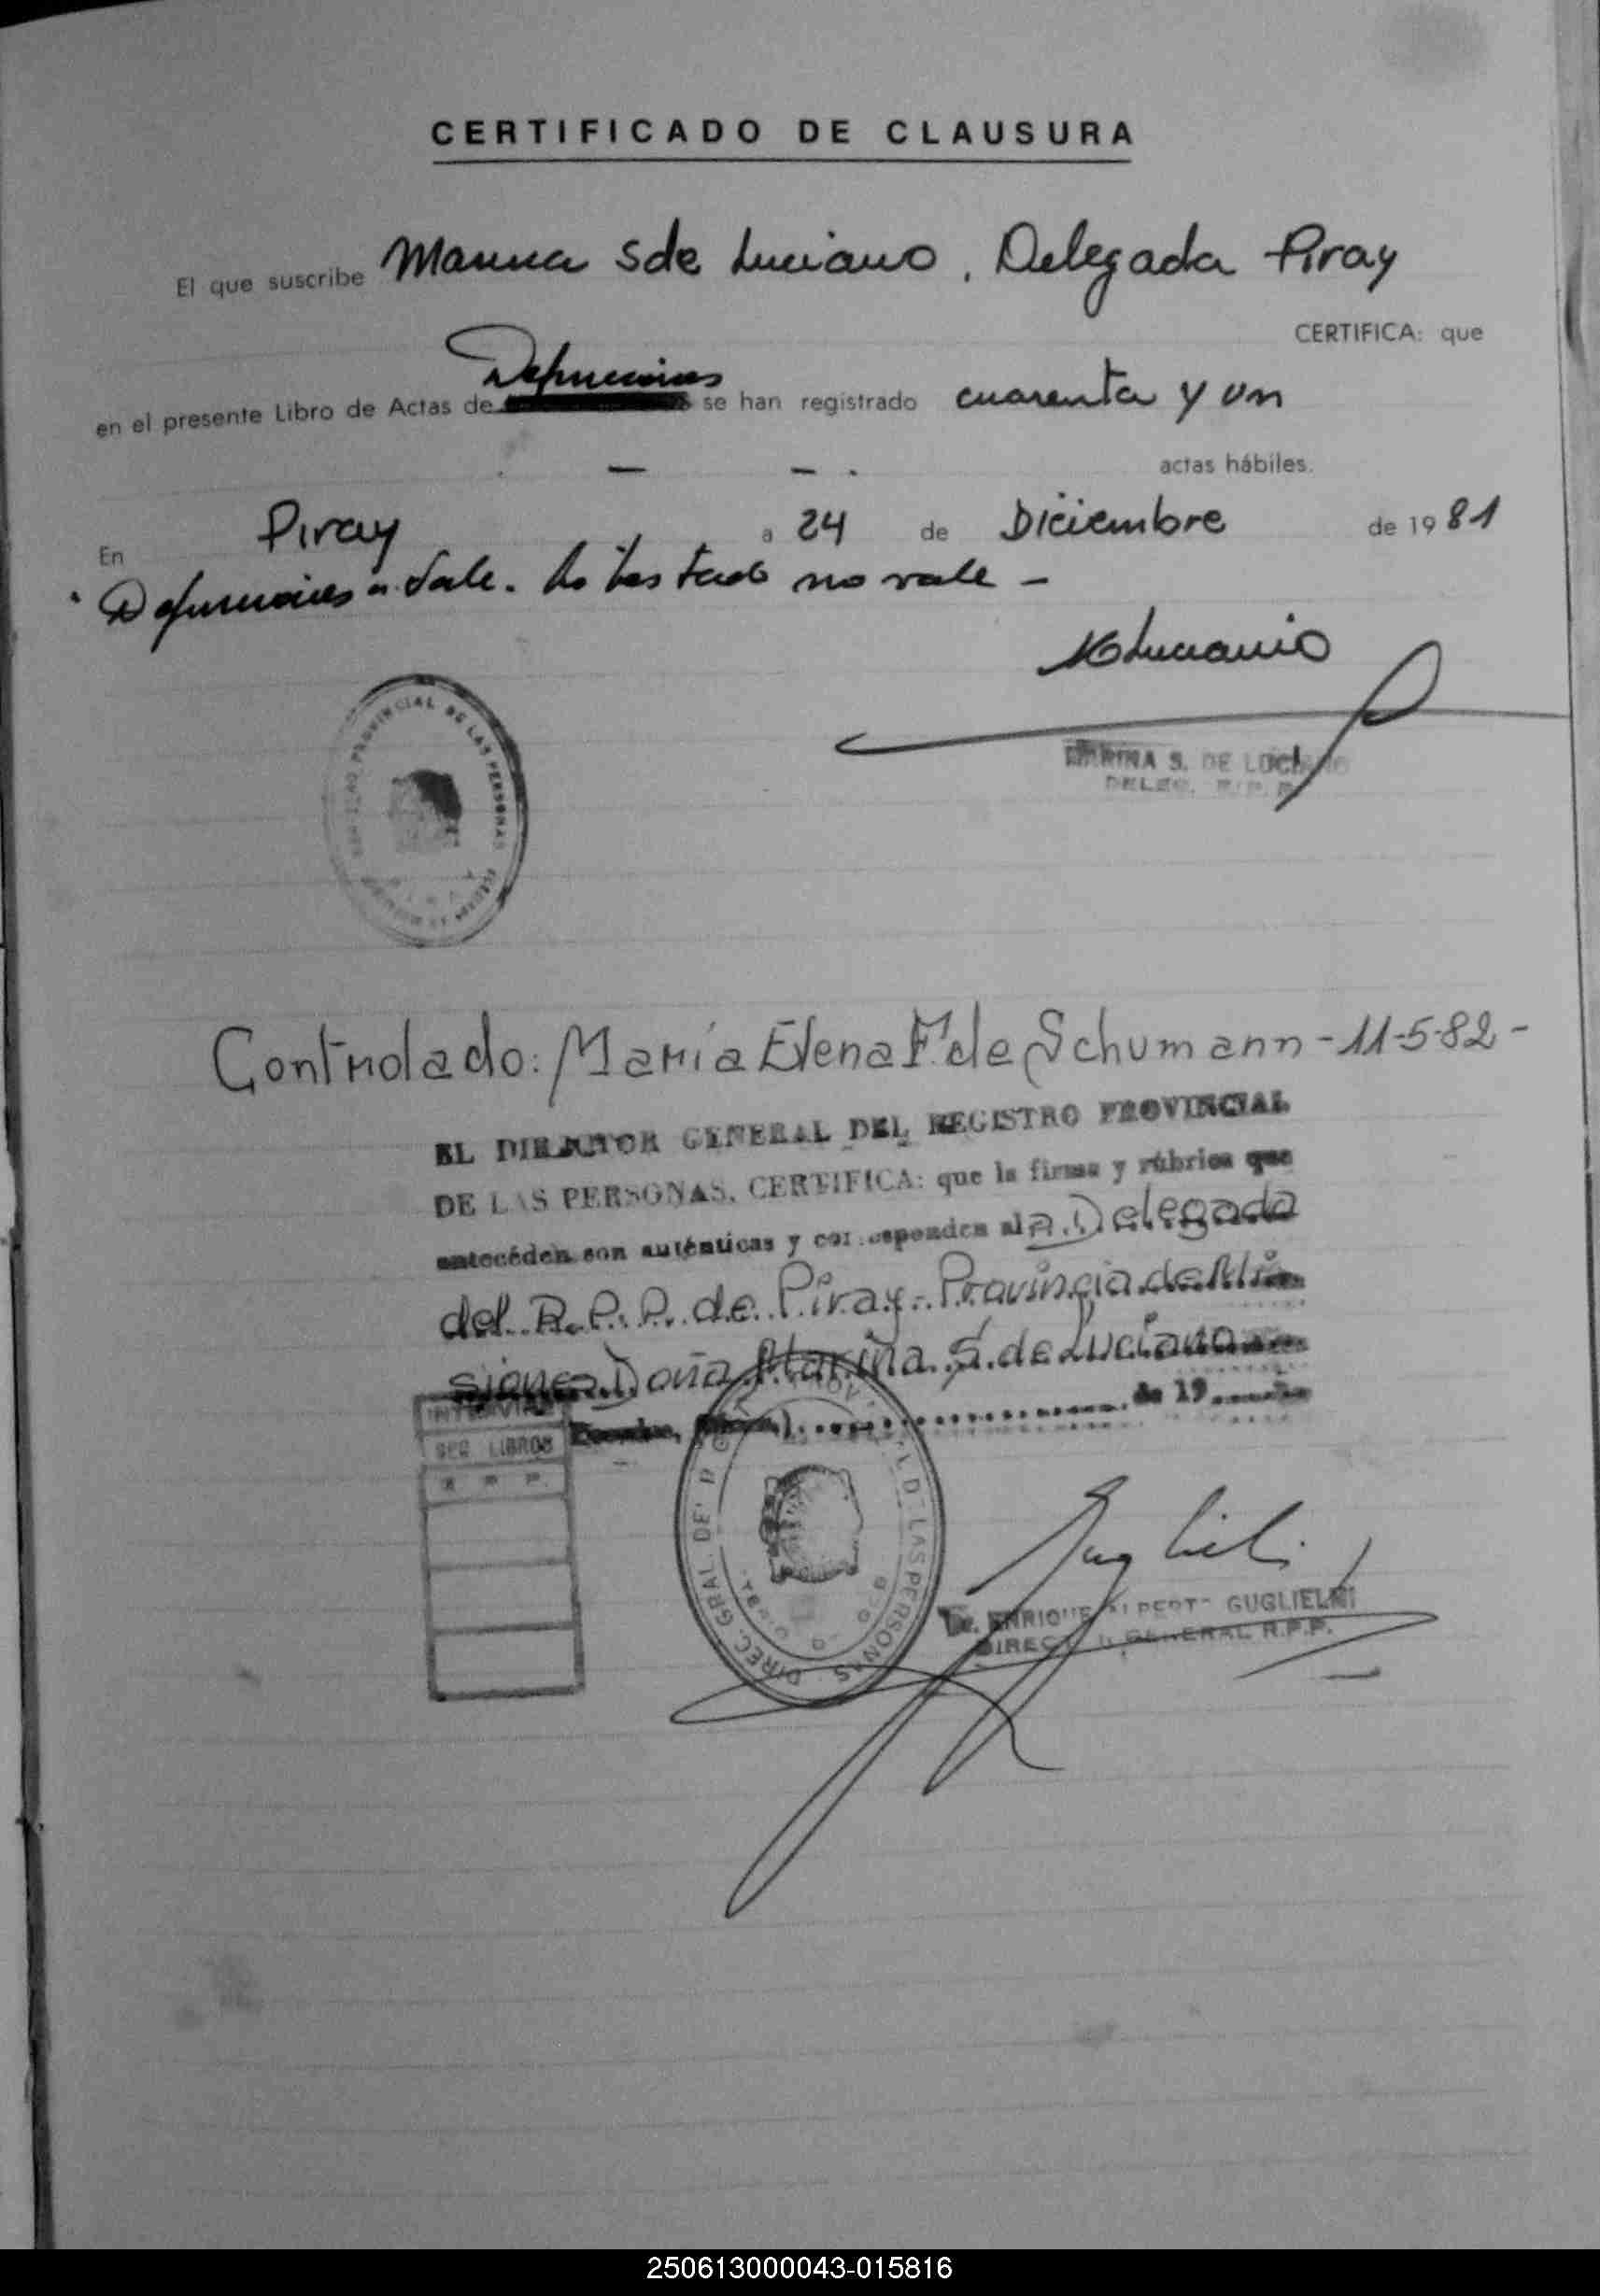 CERTIFICADO DE CLAUSURA
El que suscribe Marina S de Luciano, Delegada Piray
CERTIFICA: que
en el presente Libro de Actas de Defunciones se han registrado cuarenta y un
— — .
actas hábiles.
En Piray a 24 de Diciembre de 1981
"Defunciones" Vale. Lo testado no vale -
MLuciano
MARINA S. DE LUCIANO
DELEG. R. P. P.
PROVINCIAL DE LAS PERSONAS
PIRAY
Controlado: María Elena F. de Schumann - 11-5-82 -
EL DIRECTOR GENERAL DEL REGISTRO PROVINCIAL
DE LAS PERSONAS, CERTIFICA: que la firma y rúbrica que
antecéden son auténticas y corresponden al a. Delegada
del R.P.P. de Piray - Provincia de Mi
siones Doña Marina S. de Luciano
Posadas, (Mnes.) de 19
SEC LIBROS
R P P.
DIREC. GRAL. DEL REG. PROVINCIAL DE LAS PERSONAS
Guglielmi
Dr. ENRIQUE ALBERTO GUGLIELMI
DIRECTOR GENERAL R.P.P.
250613000043-015816